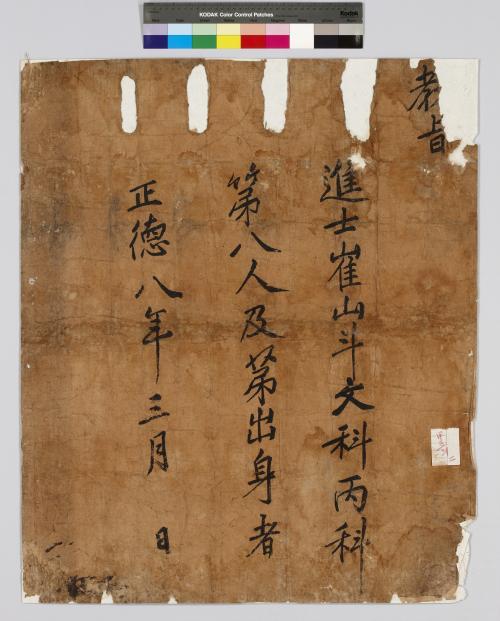 KODAK Color Control Patches
Kodak
教旨
進士崔山斗文科丙科
第八人及第出身者
正德八年三月　日